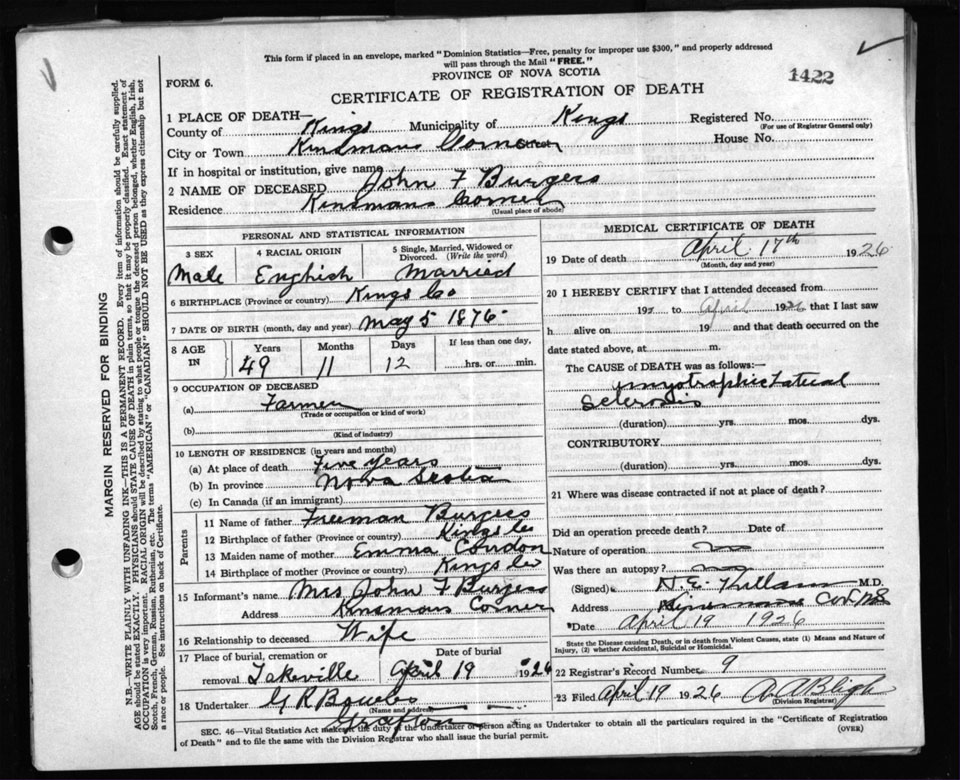 This form if placed in an envelope, marked "Dominion Statistics—Free, penalty for improper use $300," and properly addressed
will pass through the Mail "FREE."
PROVINCE OF NOVA SCOTIA
FORM 6.
1422
CERTIFICATE OF REGISTRATION OF DEATH
1 PLACE OF DEATH—
County of Kings Municipality of Kings Registered No.
(For use of Registrar General only)
City or Town Kinsmans Corner House No.
If in hospital or institution, give name
2 NAME OF DECEASED John F Burgess
Residence Kinsmans Corner
(Usual place of abode)
PERSONAL AND STATISTICAL INFORMATION
3 SEX 4 RACIAL ORIGIN 5 Single, Married, Widowed or
Divorced. (Write the word)
Male English Married
6 BIRTHPLACE (Province or country) Kings Co
7 DATE OF BIRTH (month, day and year) May 5 1876
8 AGE IN Years Months Days If less than one day,
49 11 12 hrs. or min.
9 OCCUPATION OF DECEASED
(a) Farmer
(Trade or occupation or kind of work)
(b)
(Kind of industry)
10 LENGTH OF RESIDENCE (in years and months)
(a) At place of death Five years
(b) In province Nova Scotia
(c) In Canada (if an immigrant)
Parents
11 Name of father Freeman Burgess
12 Birthplace of father (Province or country) Kings Co
13 Maiden name of mother Emma Condon
14 Birthplace of mother (Province or country) Kings Co
15 Informant's name Mrs John F Burgess
Address Kinsmans Corner
16 Relationship to deceased Wife
17 Place of burial, cremation or Date of burial
removal Lakeville April 19 1926
18 Undertaker G R Bowles
(Name and address)
Grafton
MEDICAL CERTIFICATE OF DEATH
19 Date of death April 17th 1926
(Month, day and year)
20 I HEREBY CERTIFY that I attended deceased from
19 to April 1926 that I last saw
h alive on 19 and that death occurred on
date stated above, at m.
The CAUSE of DEATH was as follows:—
amyotrophic Lateral
Sclerosis
(duration) yrs. mos. dys.
CONTRIBUTORY
(duration) yrs. mos. dys.
21 Where was disease contracted if not at place of death?
Did an operation precede death? Date of
Nature of operation
Was there an autopsy?
(Signed) N.E. Killam M.D.
Address Kinsmans Cor NS
Date April 19 1926
State the Disease causing Death, or in death from Violent Causes, state (1) Means and Nature of
Injury, (2) whether Accidental, Suicidal or Homicidal.
22 Registrar's Record Number 9
23 Filed April 19 1926 A A Bligh
(Division Registrar)
SEC. 46—Vital Statistics Act makes it the duty of the Undertaker or person acting as Undertaker to obtain all the particulars required in the "Certificate of Registration
of Death" and to file the same with the Division Registrar who shall issue the burial permit.
(OVER)
MARGIN RESERVED FOR BINDING
N.B.—WRITE PLAINLY WITH UNFADING INK—THIS IS A PERMANENT RECORD. Every item of information should be carefully supplied.
AGE should be stated EXACTLY. PHYSICIANS should STATE CAUSE OF DEATH in plain terms, so that it may be properly classified. Exact statement of
OCCUPATION is very important. RACIAL ORIGIN will be described by stating to what people or tongue the deceased person belonged, whether English, Irish,
Scotch, French, German, Russian, Ruthenian, etc. The terms "AMERICAN" or "CANADIAN" SHOULD NOT BE USED as they express citizenship but not
a race or people. See instructions on back of Certificate.